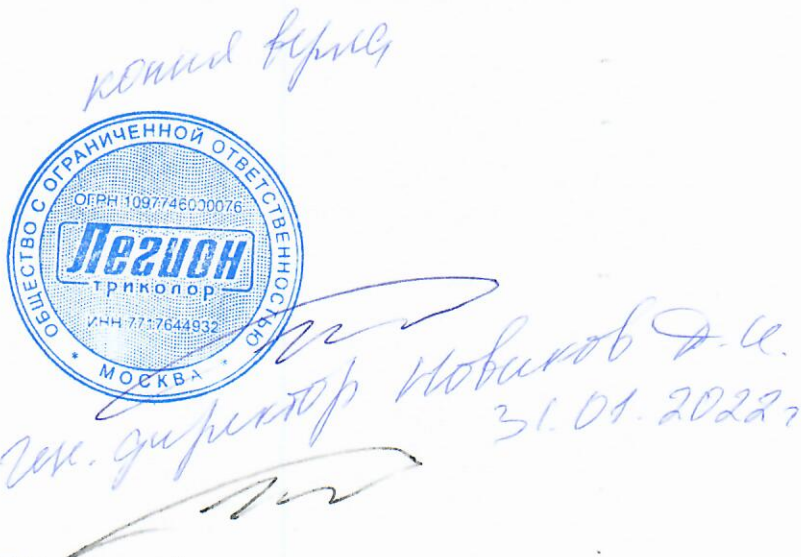 копия верна
ОБЩЕСТВО С ОГРАНИЧЕННОЙ ОТВЕТСТВЕННОСТЬЮ
ОГРН 1097746000076
Легион
триколор
ИНН 7717644932
* МОСКВА *
ген. директор Новиков А.И.
31.01.2022г